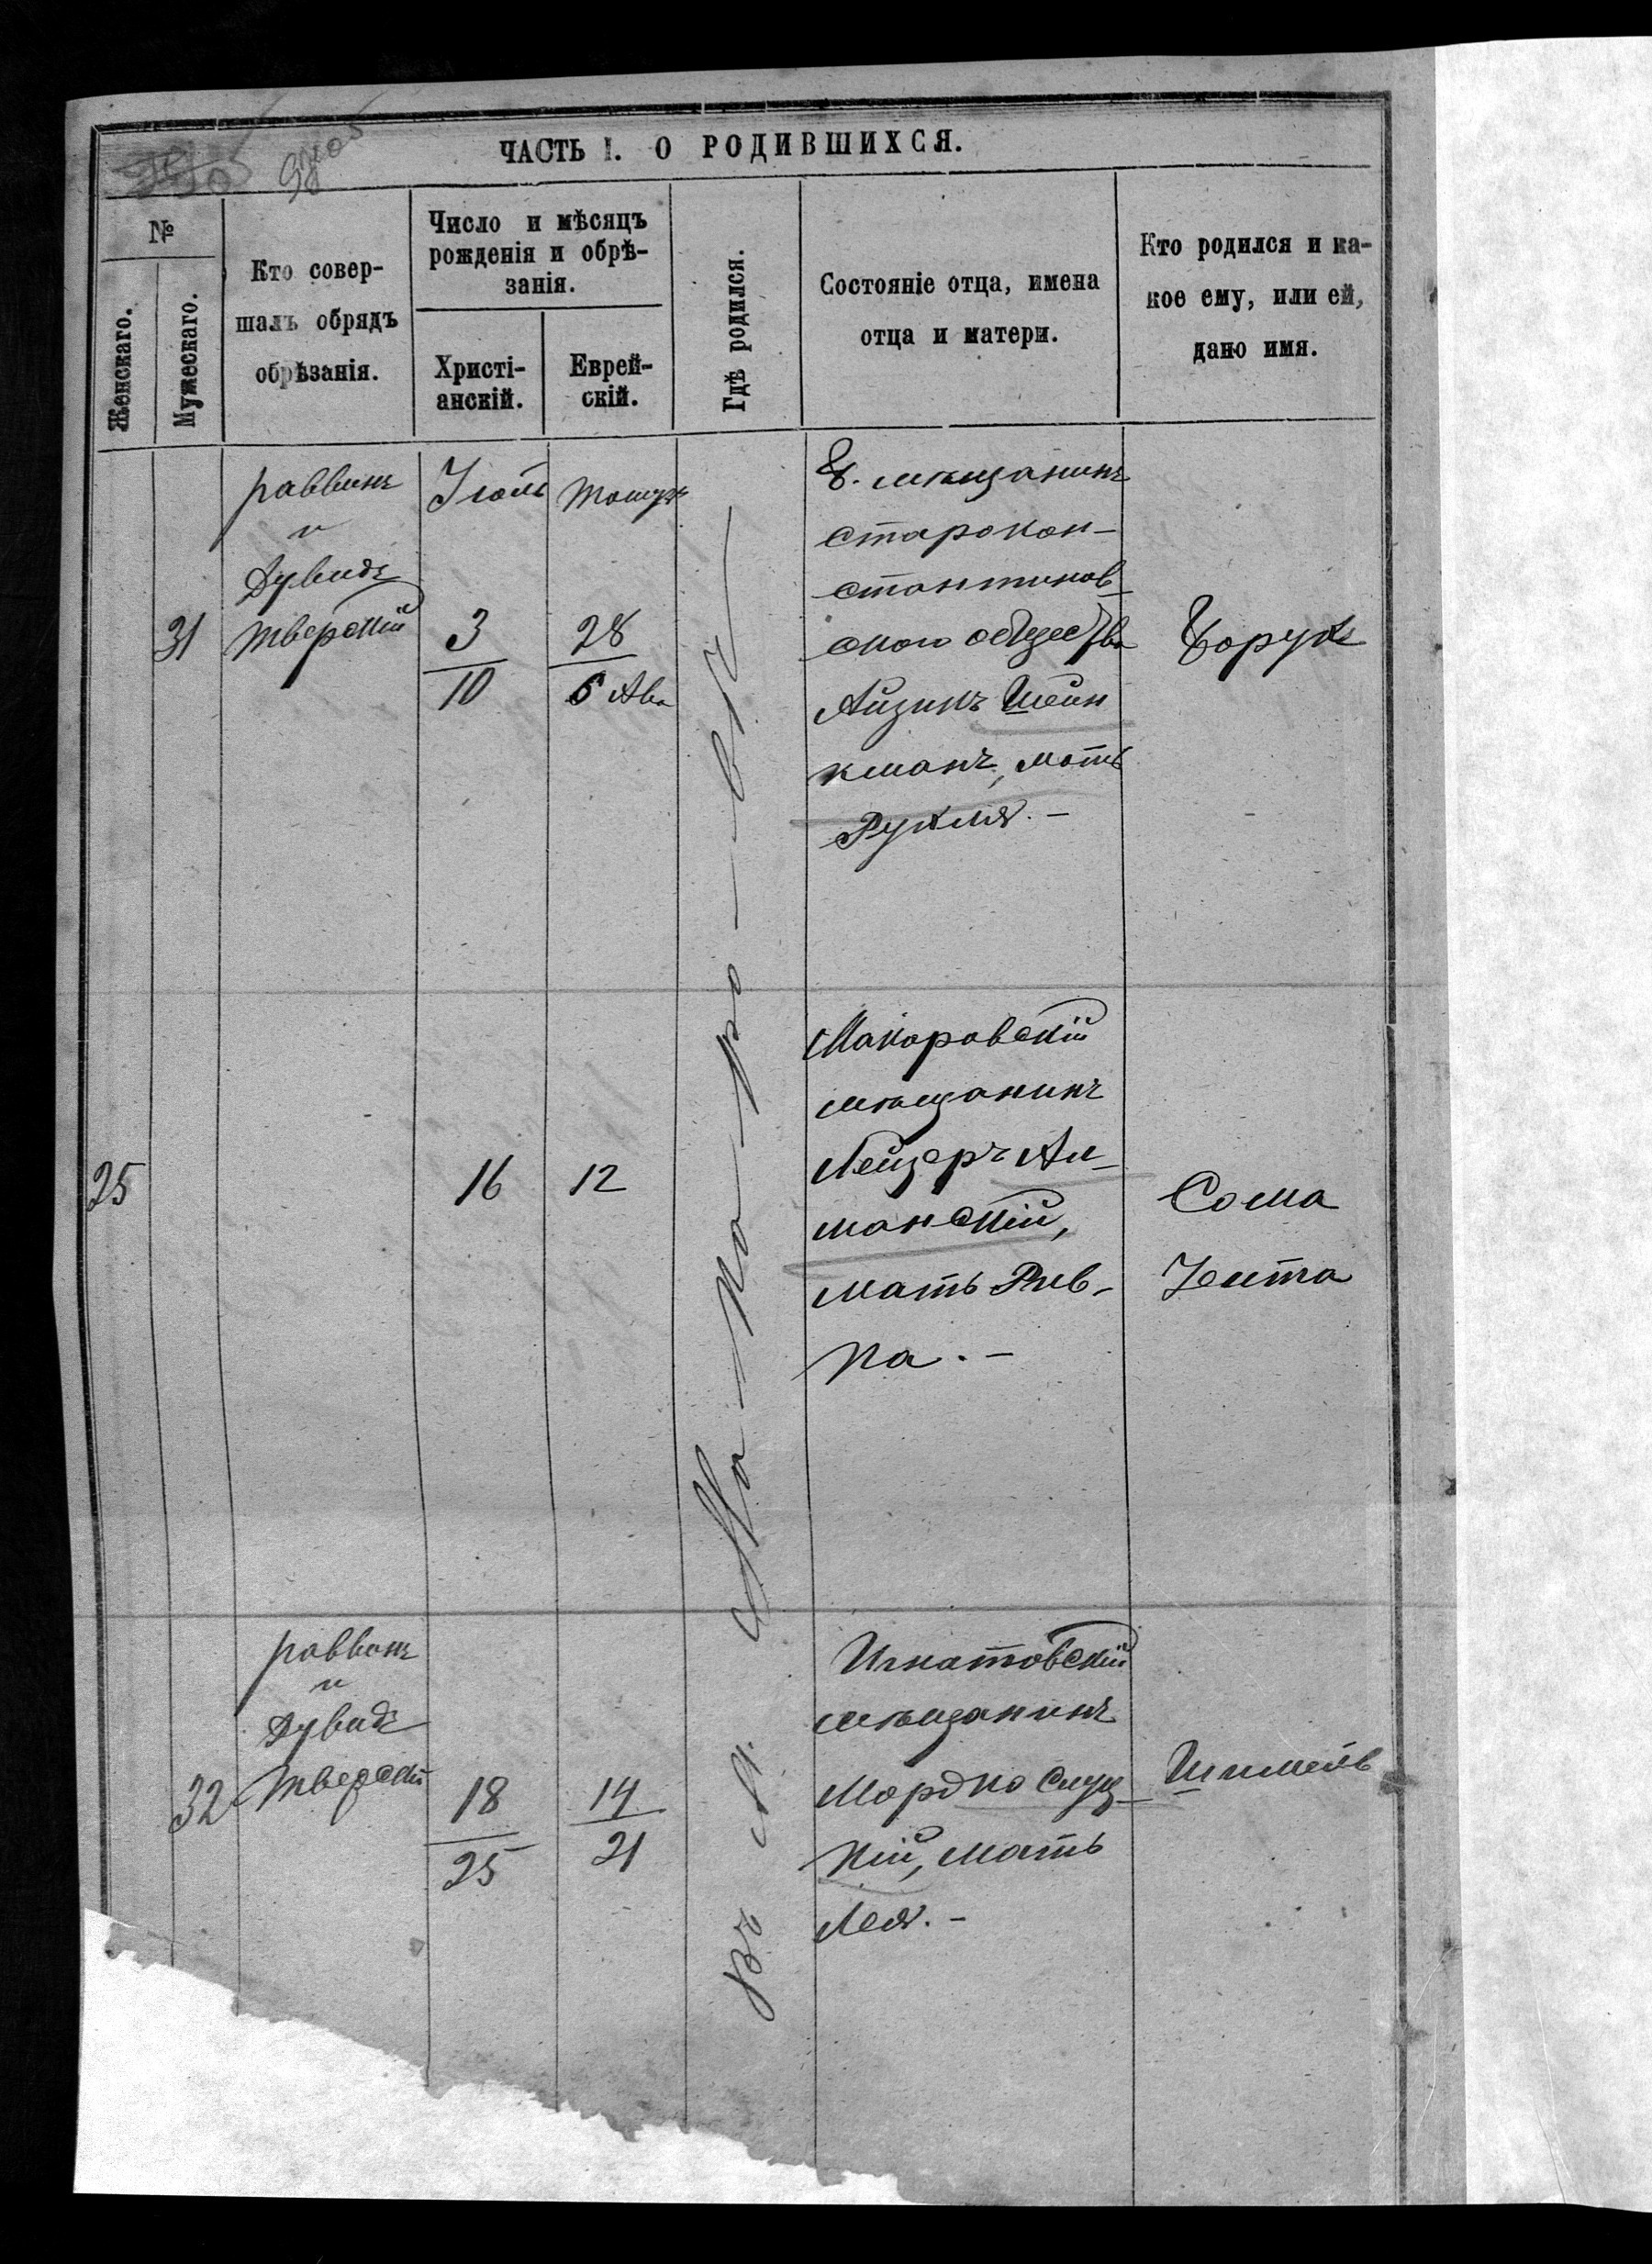 98 об
ЧАСТЬ I. О РОДИВШИХСЯ.
№
Женскаго.
Мужескаго.
Кто совер-
шалъ обрядъ
обрѣзанія.
Число и мѣсяцъ
рожденія и обрѣ-
занія.
Христі-
анскій.
Еврей-
скій.
Гдѣ родился.
Состояніе отца, имена
отца и матери.
Кто родился и ка-
кое ему, или ей,
дано имя.
31
раввинъ
и
Дувидъ
Тверскій
Іюль
3
10
Тамузъ
28
6 Ава
Въ м. Макаровѣ
мѣщанинъ
старокон-
стантинов-
скаго общества
Айзикъ Шейн
кманъ, мать
Рухля. -
Борухъ
25
16
12
Макаровскій
мѣщанинъ
Лейзеръ Ал-
манскій,
мать Рив-
ка. -
Сома
Іента
32
раввинъ
и
Дувидъ
Тверскій
18
25
14
21
Игнатовскій
мѣщанинъ
Мордко Слуц-
кій, мать
Лея. -
Шмиель